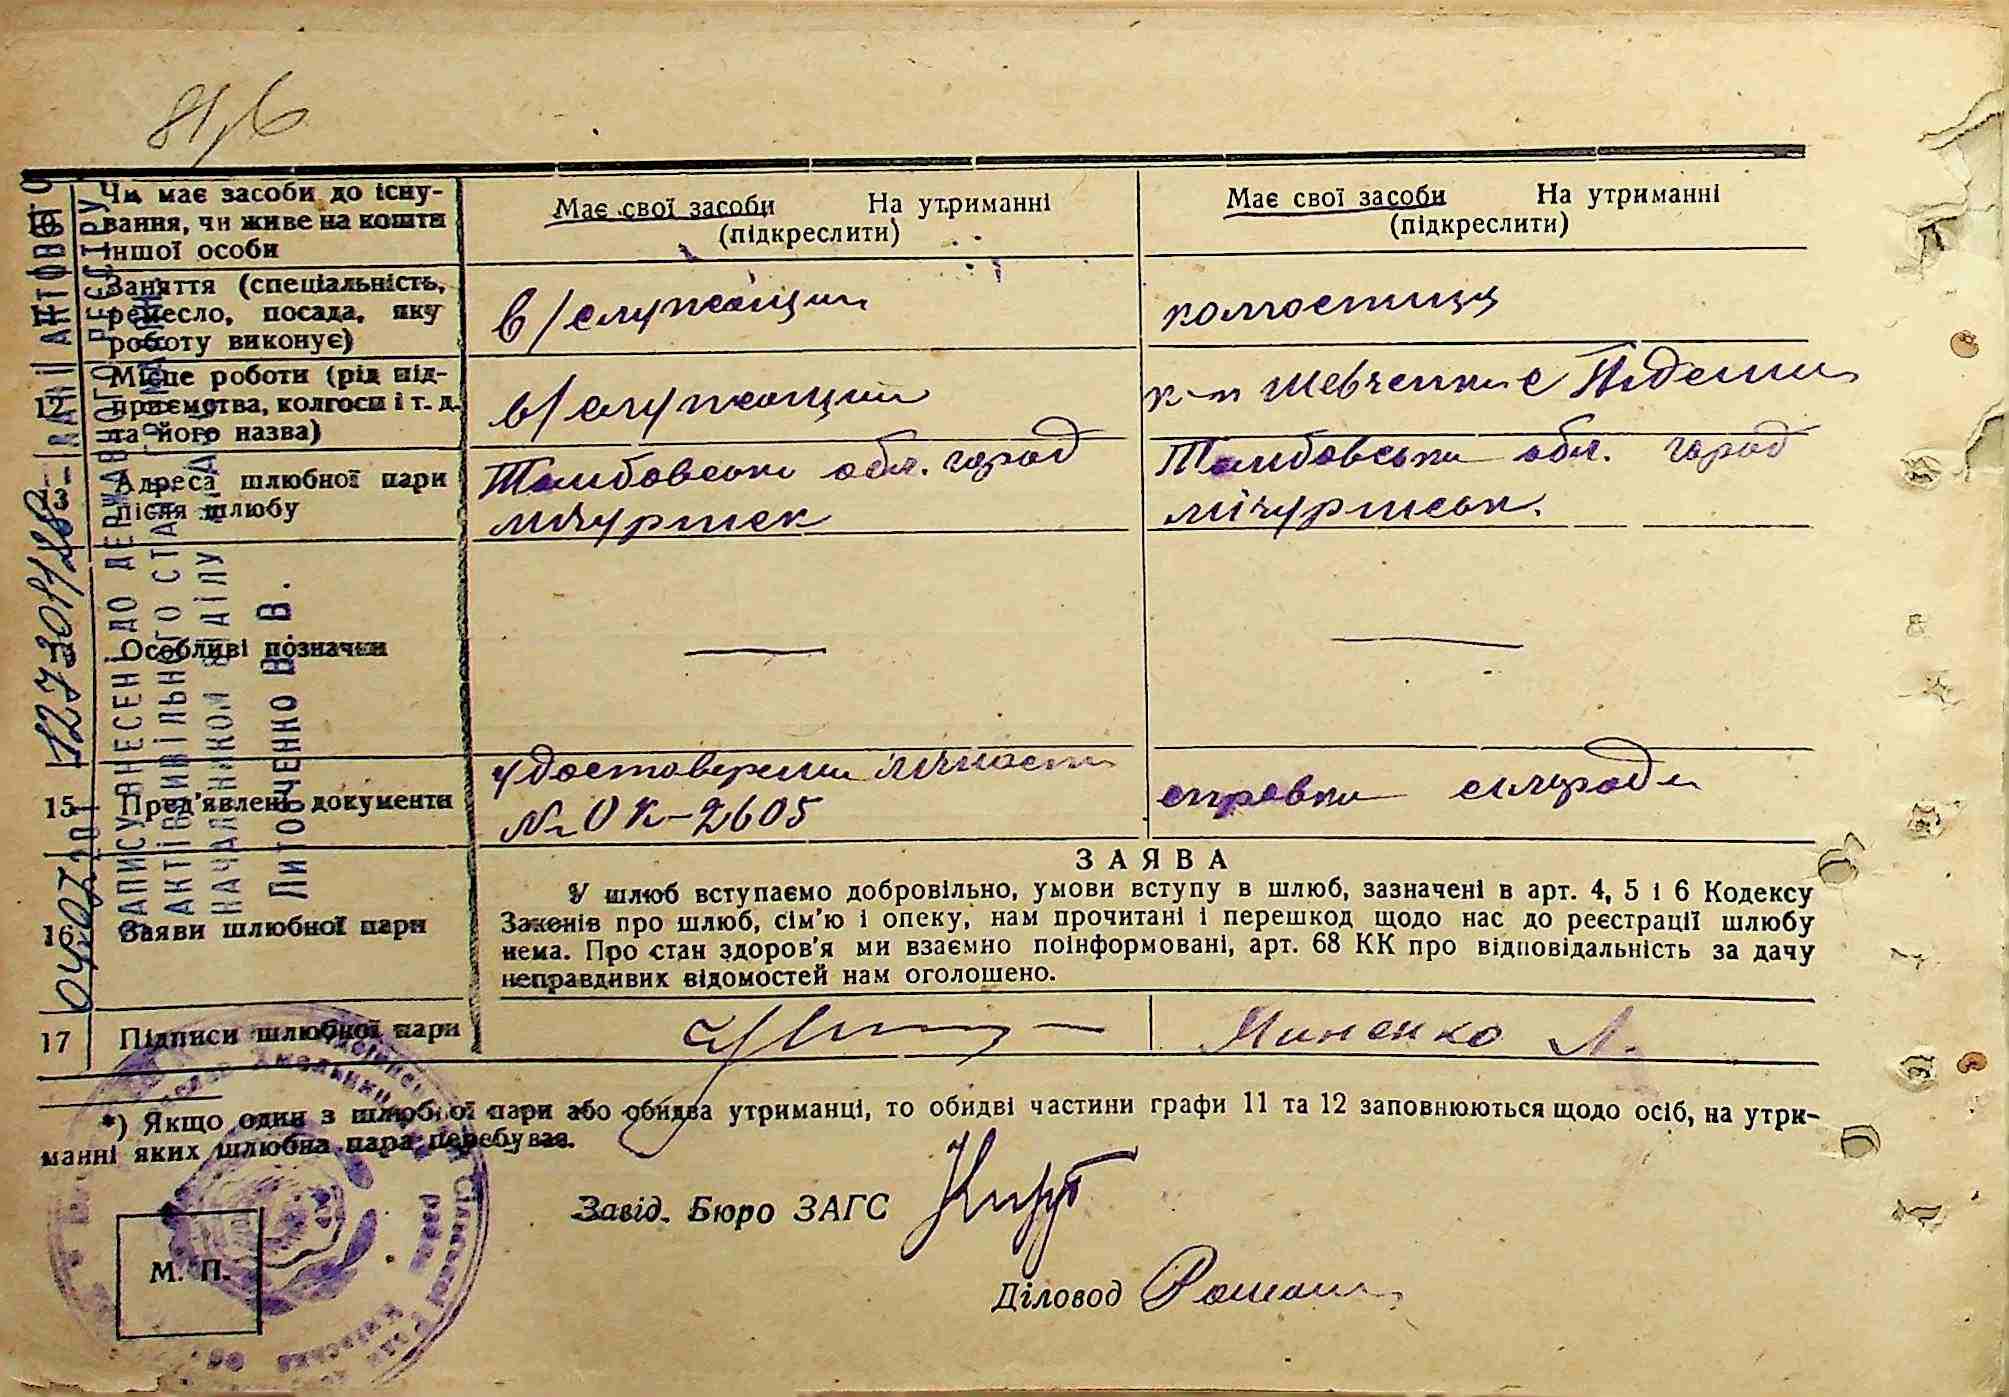 81/6
Чи має засоби до існу-
вання, чи живе на кошти
іншої особи
Має свої засоби На утриманні
(підкреслити)
Має свої засоби На утриманні
(підкреслити)
11 Заняття (спеціальність,
ремесло, посада, яку
роботу виконує)
в/служащий
колгоспниця
12 Місце роботи (рід під-
приємства, колгоси і т. д.
та його назва)
в/служащий
к-п Шевченка с
13 Адреса шлюбної пари
після шлюбу
Тамбовська обл. город
мічурінск
Тамбовська обл. город
мічурінськ.
Особливі позначки
—
—
15 Пред'явлені документи
удостоверении личности
№ОК-2605
справка сілради
16 Заяви шлюбної пари
ЗАЯВА
У шлюб вступаємо добровільно, умови вступу в шлюб, зазначені в арт. 4, 5 і 6 Кодексу
Законів про шлюб, сім'ю і опеку, нам прочитані і перешкод щодо нас до реєстрації шлюбу
нема. Про стан здоров'я ми взаємно поінформовані, арт. 68 КК про відповідальність за дачу
неправдивих відомостей нам оголошено.
17 Підписи шлюбної пари
Миненко Л.
*) Якщо один з шлюбної пари або обидва утриманці, то обидві частини графи 11 та 12 заповнюються щодо осіб, на утри-
манні яких шлюбна пара перебуває.
Завід. Бюро ЗАГС
Діловод
М. П.
ЗАПИСУ ВНЕСЕН ДО ДЕРЖАВНОГО РЕЄСТРУ
АКТІВ ЦИВІЛЬНОГО СТАНУ
НАЧАЛЬНИКОМ ВІДДІЛУ
Литовченко В. В.